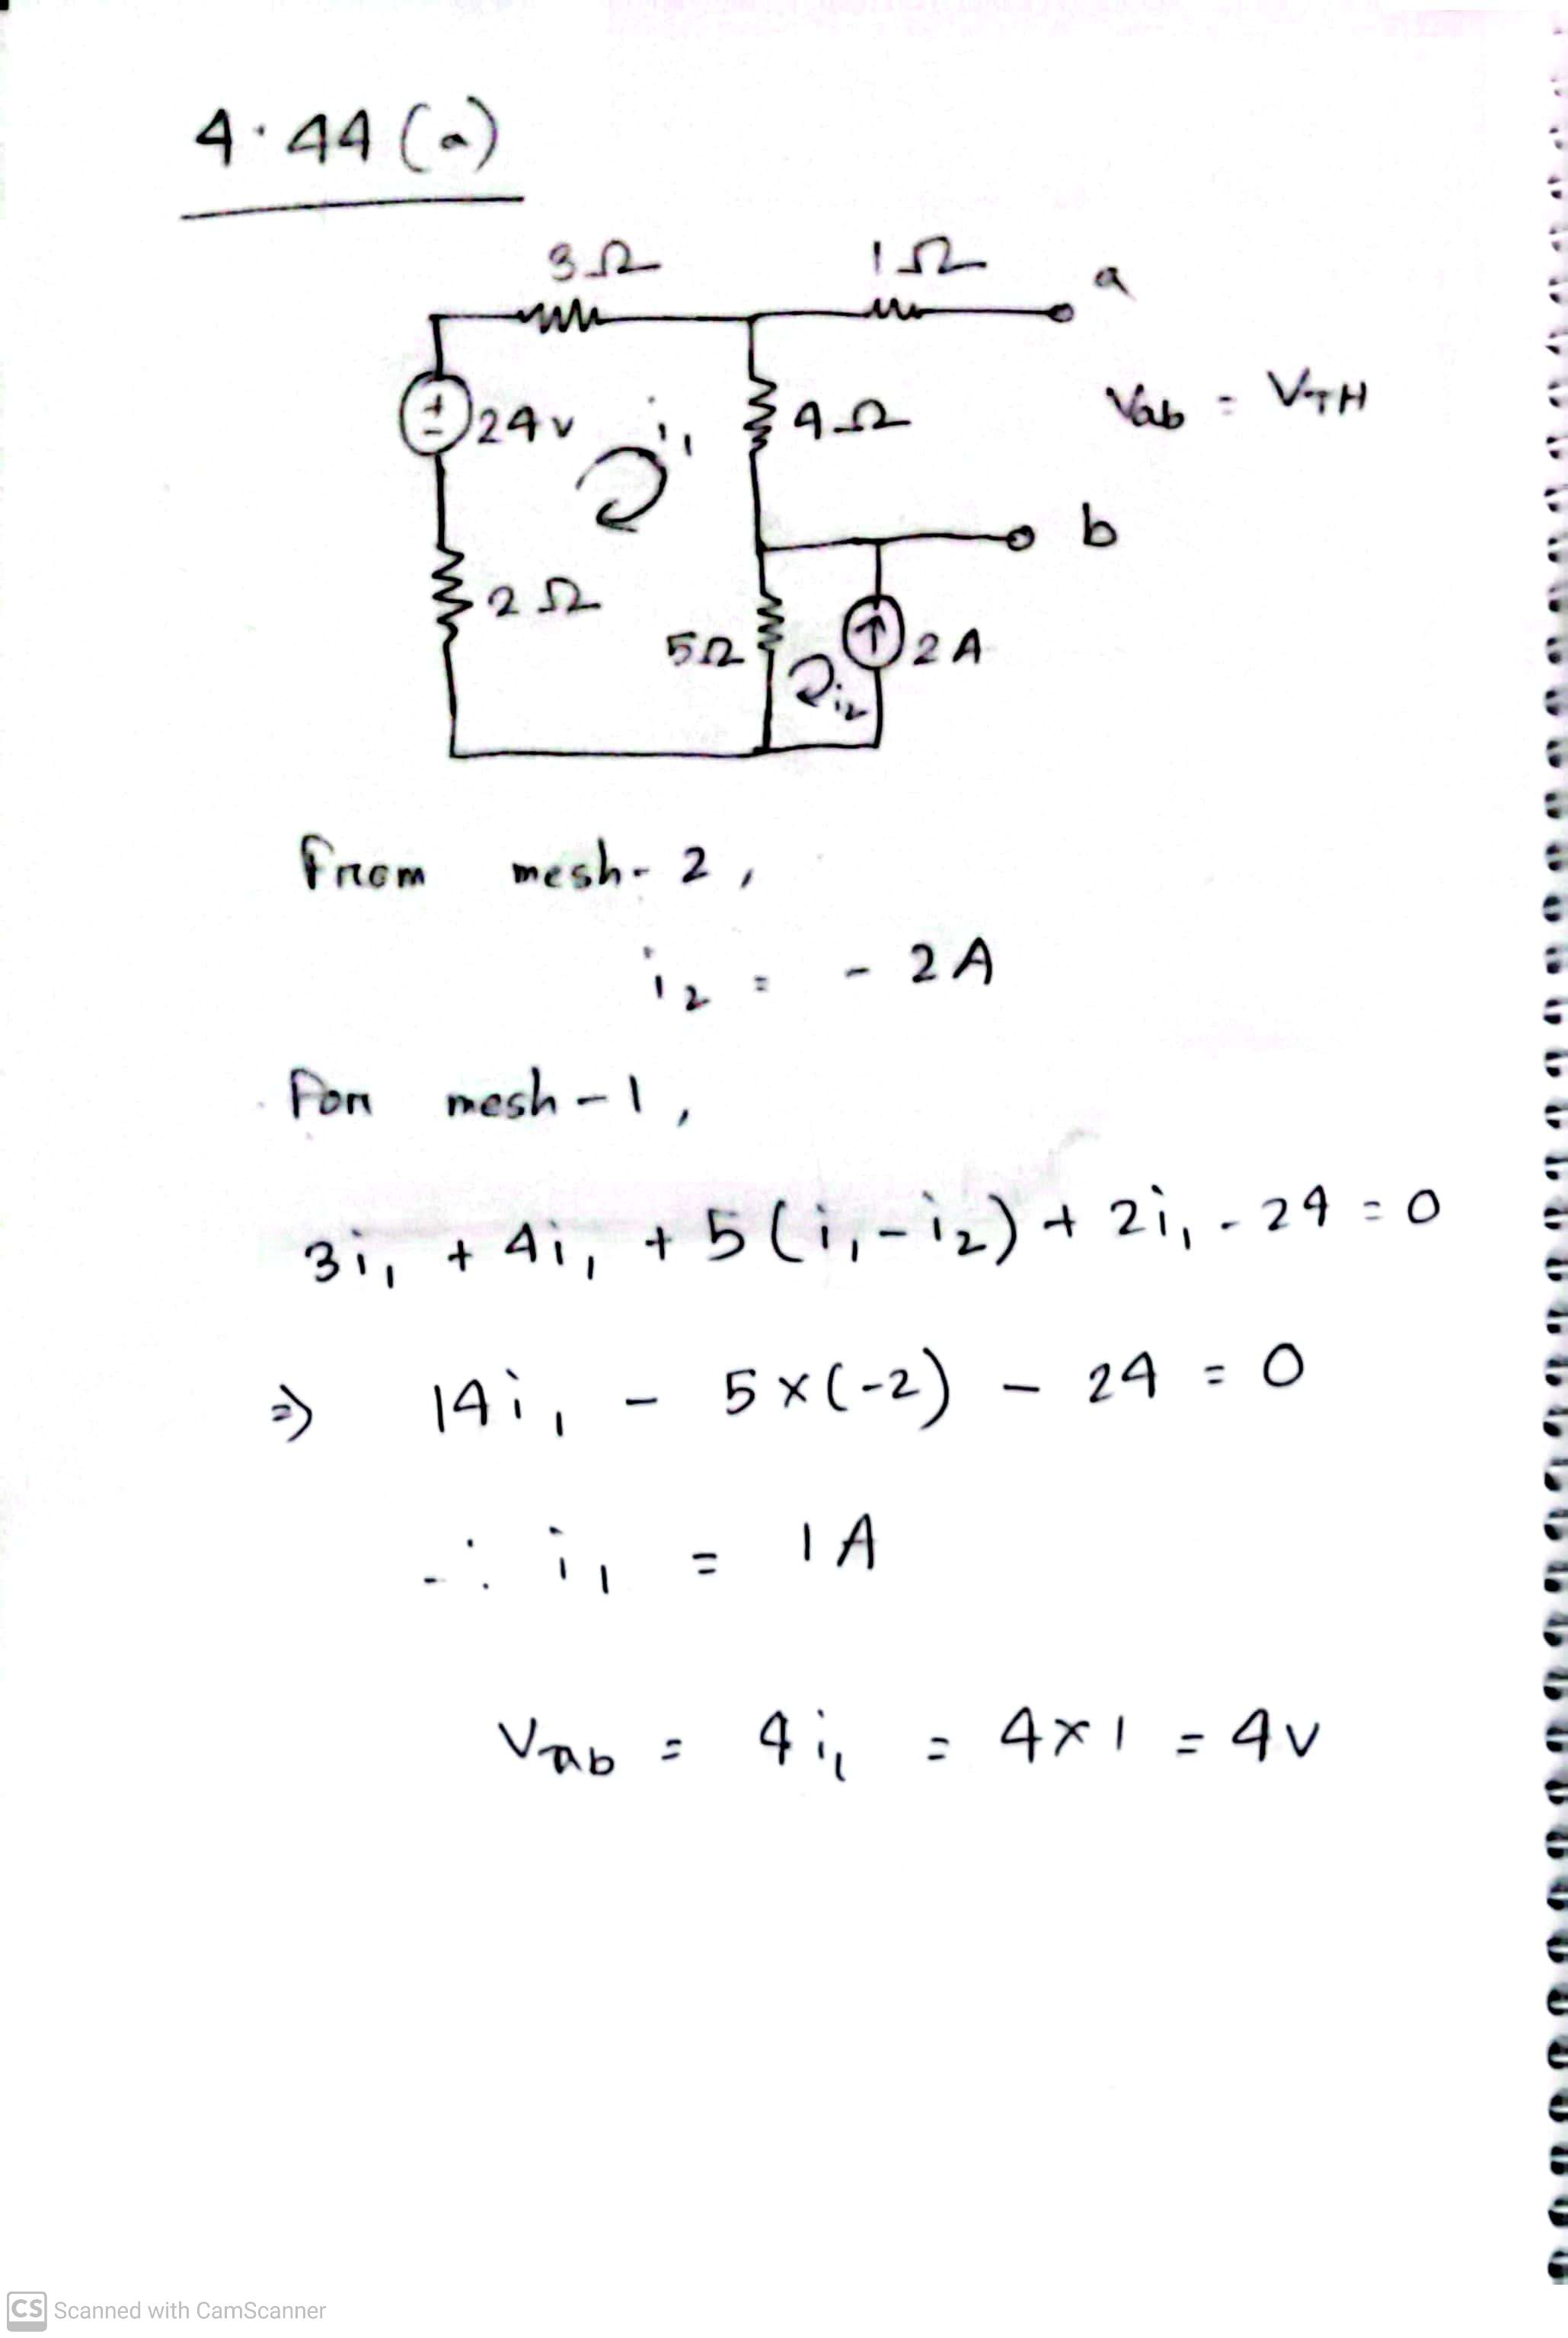 4.44 (a)
3Ω
1Ω
a
+
-
24v
i₁
4Ω
Vab = VTH
b
2Ω
5Ω
2A
i₂
From mesh-2,
i₂ = - 2A
For mesh-1,
3i₁ + 4i₁ + 5(i₁-i₂) + 2i₁ - 24 = 0
⇒ 14i₁ - 5×(-2) - 24 = 0
∴ i₁ = 1A
Vab = 4i₁ = 4×1 = 4v
CS Scanned with CamScanner